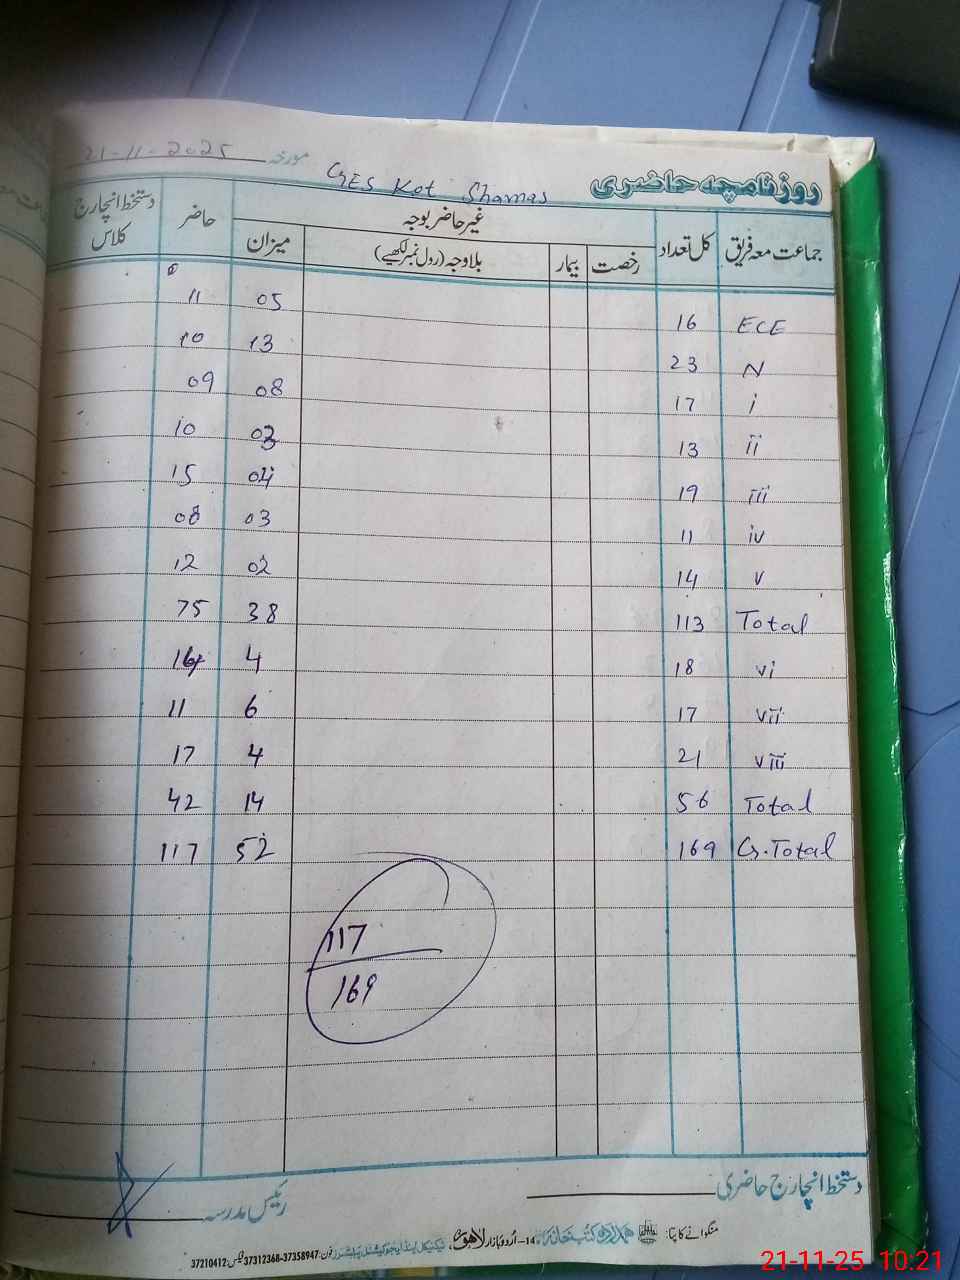 روزنامچہ حاضری GES Kot Shamas مورخہ 21-11-2025
جماعت معہ فریق کل تعداد غیر حاضر بوجہ حاضر دستخط انچارج کلاس
رخصت بیمار بلاوجہ (رول نمبر لکھیے) میزان
ECE 16 05 11
N 23 13 10
i 17 08 09
ii 13 03 10
iii 19 04 15
iv 11 03 08
v 14 02 12
Total 113 38 75
vi 18 4 14
vii 17 6 11
viii 21 4 17
Total 56 14 42
G.Total 169 52 117
117
169
دستخط انچارج حاضری
رئیس مدرسہ
منگوانے کا پتا: ہمدرد کتب خانہ 14-اُردو بازار لاہور، ٹیکنیکل اینڈ ایجوکیشنل پبلشرز فون: 37358947-37312368 فیکس: 37210412
21-11-25 10:21